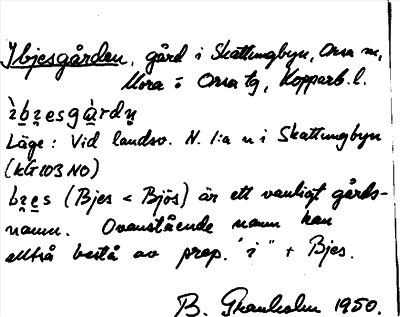 Ibjesgården, gård i Skattungbyn, Orsa sn,
Mora o Orsa tg, Kopparb. l.
ìb̥z̥esgà̱rdn̥
Läge: Vid landsv. N. l:a n i Skattungbyn
(KG103 NO)
bz̥es (Bjes < Bjös) är ett vanligt gårds-
namn. Ovanstående namn kan
alltså bestå av prep. "i" + Bjes.
B. Granholm 1950.